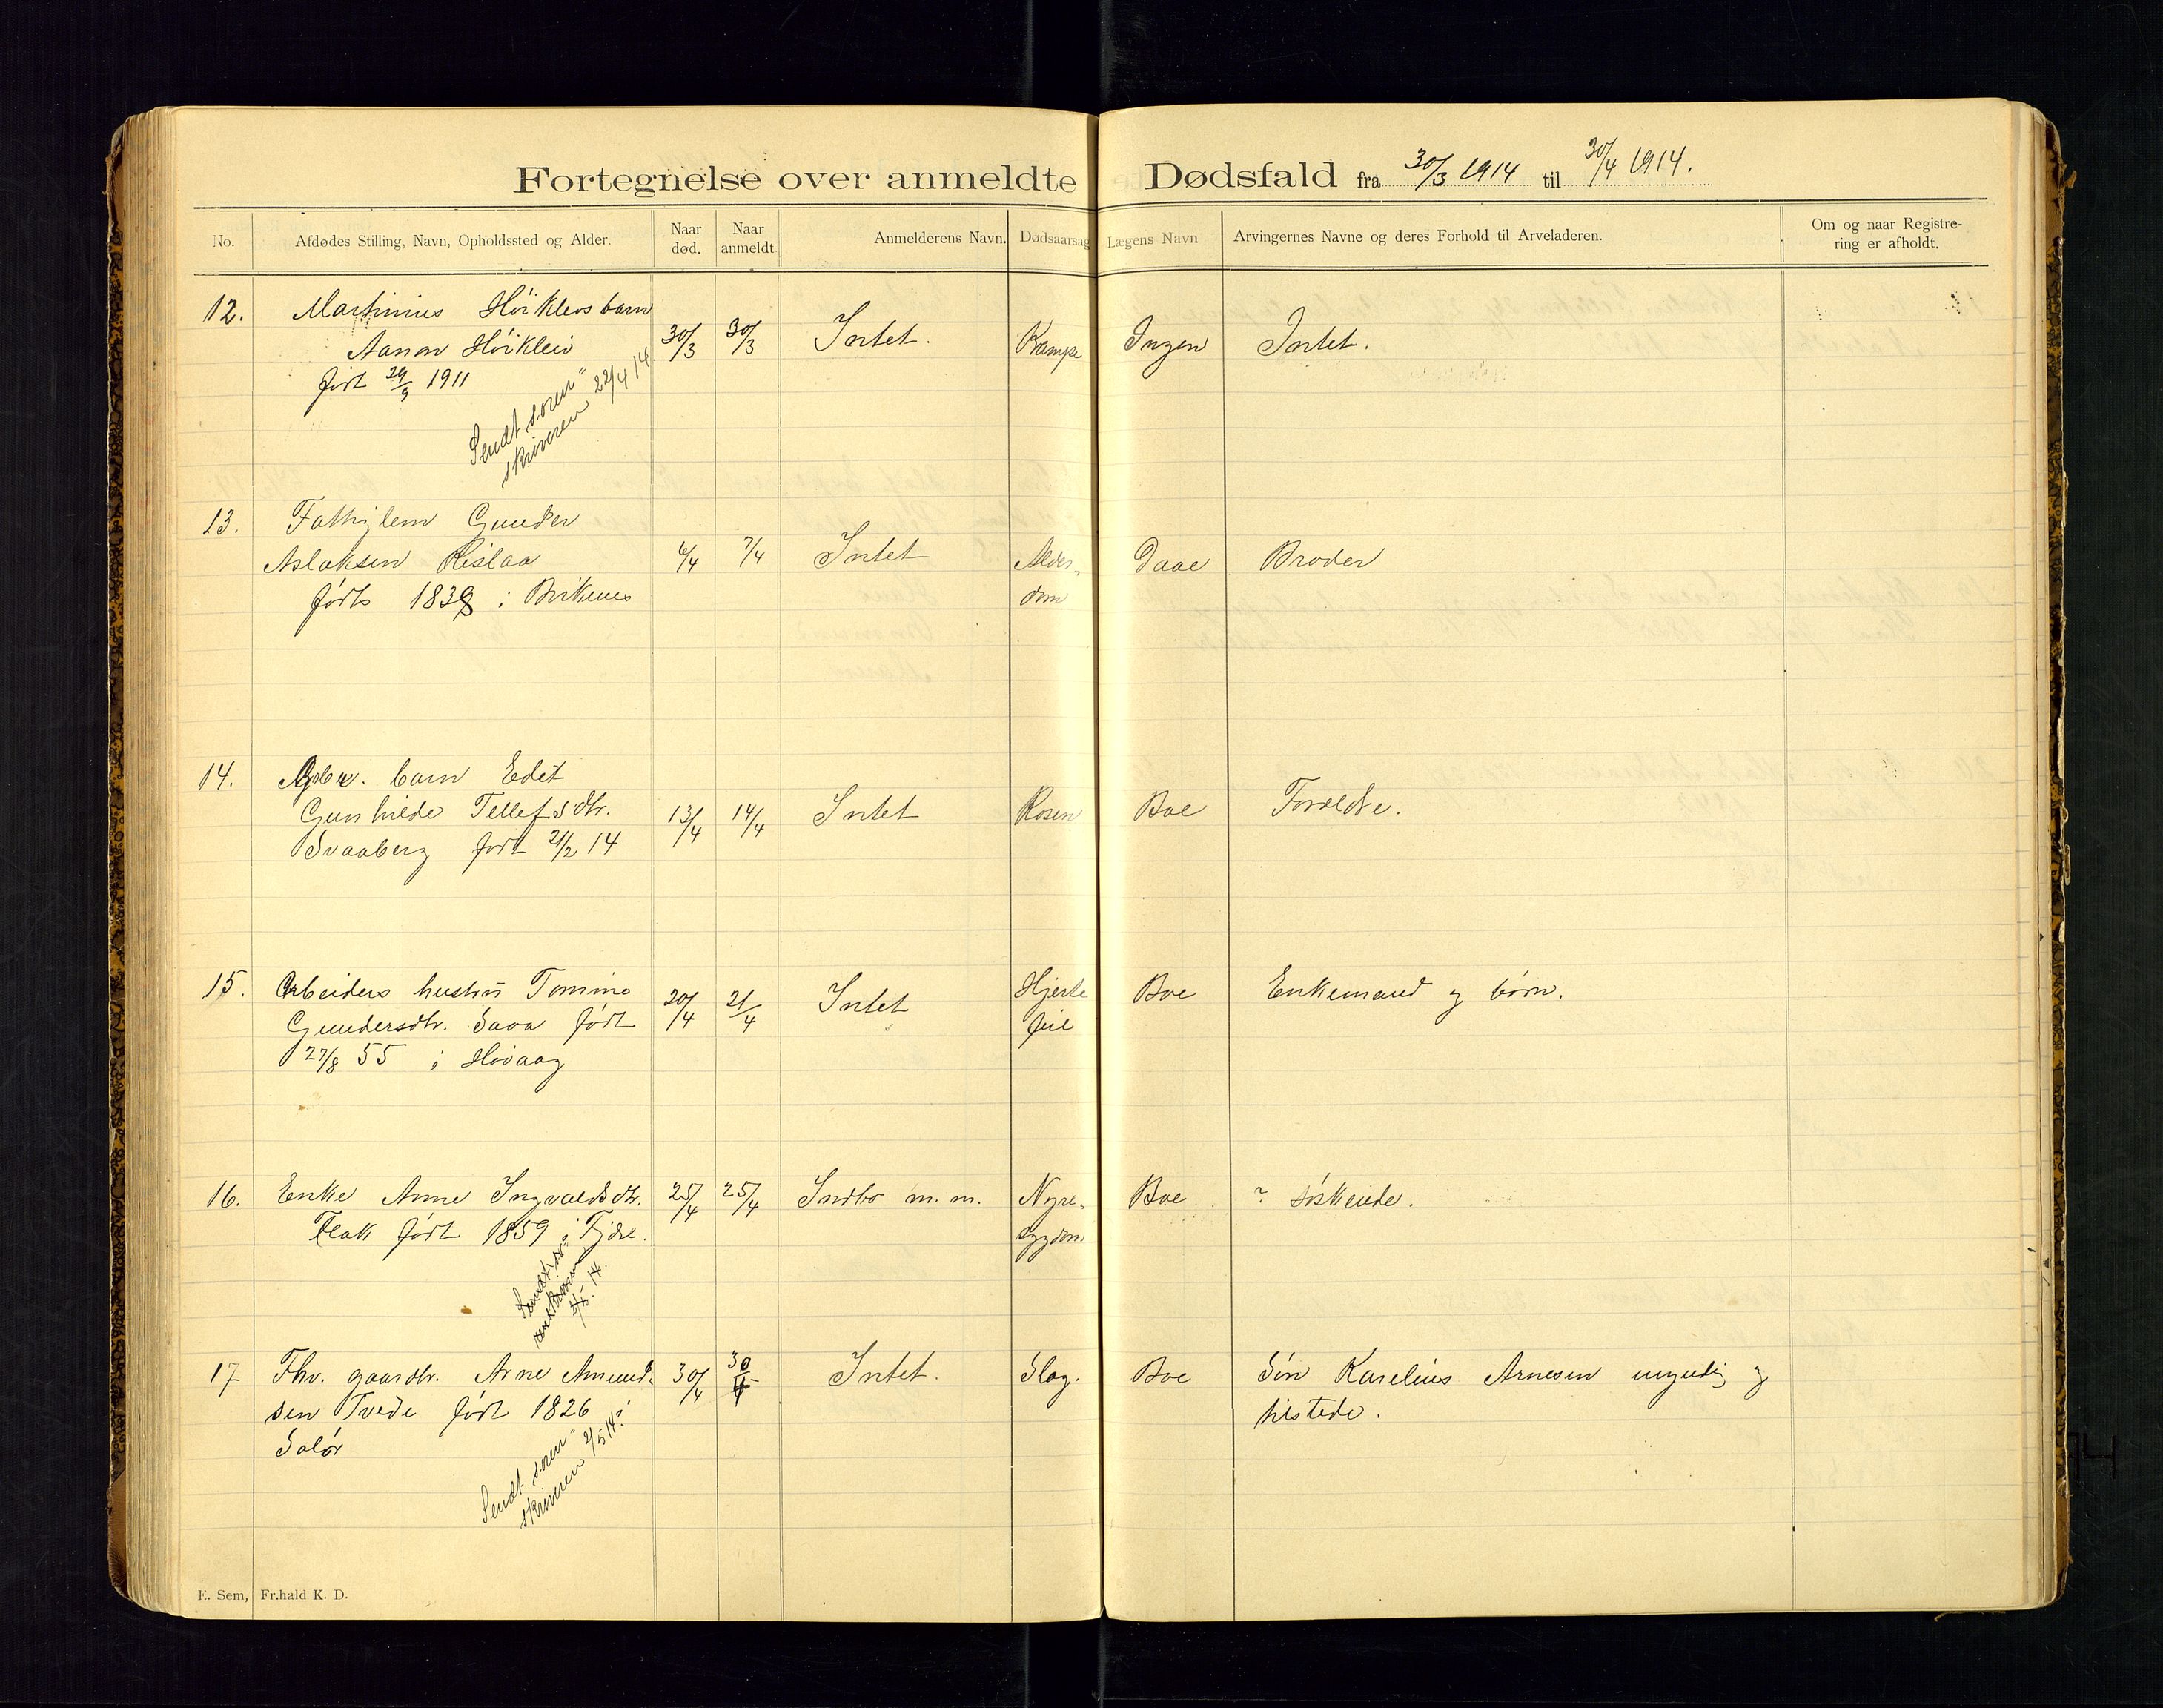 Fortegnelse over anmeldte Dødsfald fra 30/3 1914 til 30/4 1914.
No. Afdødes Stilling, Navn, Opholdssted og Alder. Naar død. Naar anmeldt. Anmelderens Navn. Dødsaarsag Lægens Navn Arvingernes Navne og deres Forhold til Arveladeren. Om og naar Registrering er afholdt.
12. Martinius Høiklevs barn
Aanon Høiklev 30/3 30/3 Intet. Krampe Ingen Intet.
født 29/9 1911
Sendt soren=
skriveren 22/4 14.
13. Fattiglem Gunder
Aslaksen Rislaa 6/4 7/4 Intet Alder- Daae Broder
født 1838 i Birkenes dom
14. Arbr. barn Edit
Gunhilde Tellefsdtr. 13/4 14/4 Intet Rosen Boe Foreldre.
Svaaberg født 21/2 14
15. Arbeiders hustru Tomine Hjerte Boe Enkemand og børn.
Gundersdtr. Sava født 20/4 21/4 Intet feil
27/8 55 i Høvaag
16. Enke Anne Ingvaldsdtr. 25/4 25/4 Indbo m. m. Nyre- Boe ? søskende.
Flak født 1859 i Fjære. sygdom
Sendt so-
renskriveren
4/5. 14.
17 Fhv. gaardbr. Arne Amund- 30/4 30/4 Intet. Slag. Boe Søn Karelius Arnesen myndig og
sen Tvede født 1826 i tilstede.
Salór
Sendt soren=
skriveren 2/5 14.
E. Sem, Fr.hald K. D.